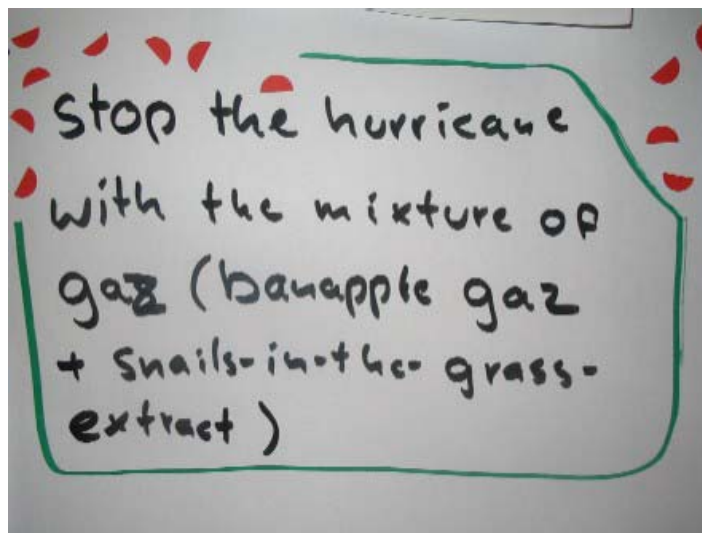 stop the hurricane
with the mixture of
gaz (banapple gaz
+ snails-in-the-grass-
extract)